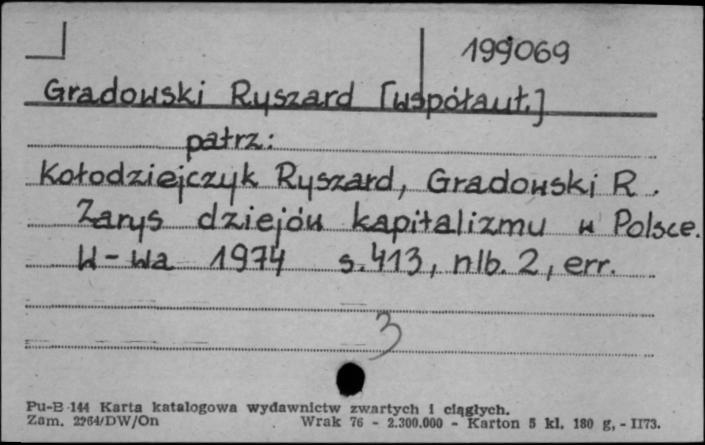 199069
Gradowski Ryszard [współaut.]
patrz:
Kołodziejczyk Ryszard, Gradowski R.
Zarys dziejów kapitalizmu w Polsce.
W-wa 1974 s. 413, nlb. 2, err.
3
Pu-B 144 Karta katalogowa wydawnictw zwartych i ciągłych.
Zam. 2264/DW/On Wrak 76 - 2.300.000 - Karton 5 kl. 180 g, - II73.